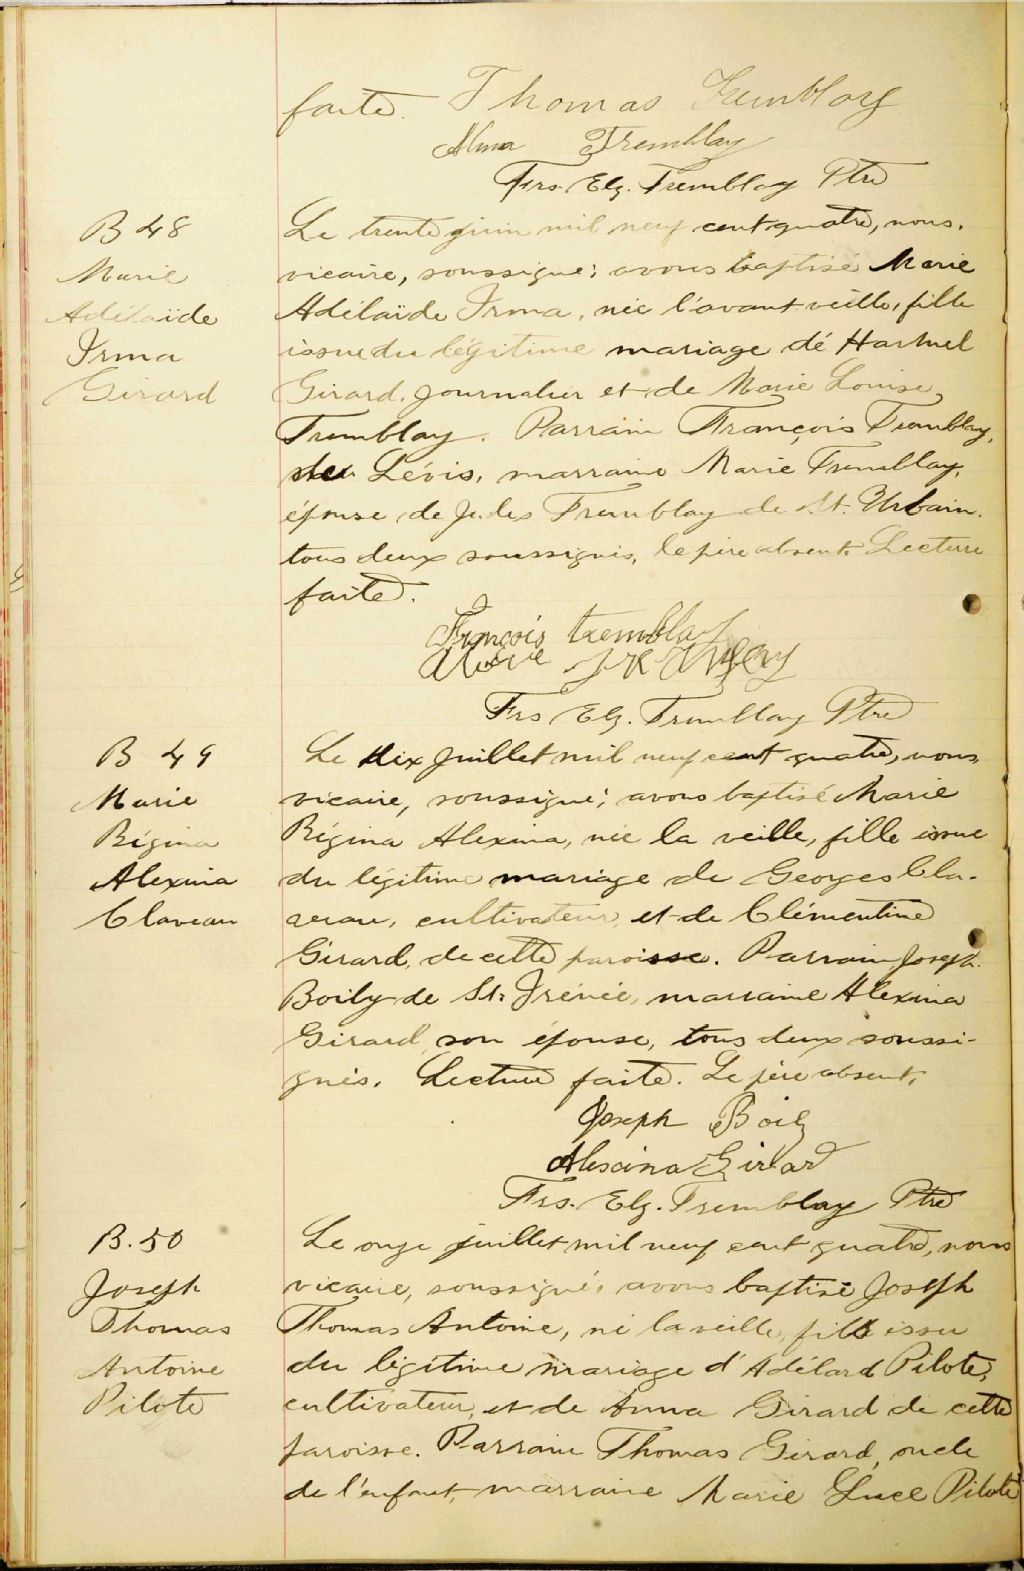 faite. Thomas Tremblay
Alma Tremblay
Frs. Elz. Tremblay Ptre
B 48
Marie
Adélaïde
Irma
Girard
Le trente juin mil neuf cent quatre, nous,
vicaire, soussigné, avons baptisé Marie
Adélaïde Irma, née l'avant veille, fille
issue du légitime mariage de Harmel
Girard, journalier et de Marie Louise
Tremblay. Parrain François Tremblay,
de Lévis, marraine Marie Tremblay,
épouse de Jules Tremblay de St. Urbain,
tous deux soussignés, le père absent. Lecture
faite.
François tremblay
Marie
Frs Elz. Tremblay Ptre
B 49
Marie
Régina
Alexina
Claveau
Le dix juillet mil neuf cent quatre, nous,
vicaire, soussigné, avons baptisé Marie
Régina Alexina, née la veille, fille issue
du légitime mariage de Georges Cla-
veau, cultivateur, et de Clémentine
Girard, de cette paroisse. Parrain Joseph
Boily de St. Irénée, marraine Alexina
Girard, son épouse, tous deux soussi-
gnés. Lecture faite. Le père absent.
Joseph Boily
Alexina Girard
Frs. Elz. Tremblay Ptre
B. 50
Joseph
Thomas
Antoine
Pilote
Le onze juillet mil neuf cent quatre, nous
vicaire, soussigné, avons baptisé Joseph
Thomas Antoine, né la veille, fils issu
du légitime mariage d'Adélard Pilote,
cultivateur, et de Anna Girard de cette
paroisse. Parrain Thomas Girard, oncle
de l'enfant, marraine Marie Luce Pilote